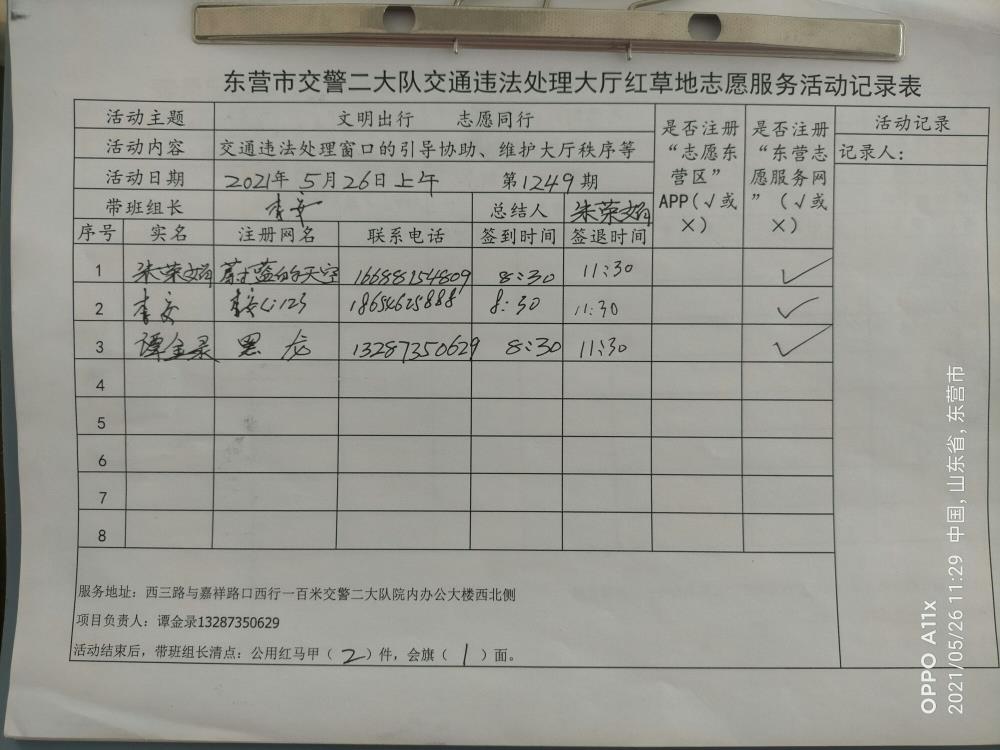 东营市交警二大队交通违法处理大厅红草地志愿服务活动记录表
活动主题 文明出行 志愿同行 是否注册“志愿东营区”APP(√或×) 是否注册“东营志愿服务网”(√或×) 活动记录
活动内容 交通违法处理窗口的引导协助、维护大厅秩序等 记录人：
活动日期 2021年5月26日上午 第1249期
带班组长 李安 总结人 朱荣娟
序号 实名 注册网名 联系电话 签到时间 签退时间
1 朱荣娟 蔚蓝的天空 16688154809 8:30 11:30 ✓
2 李安 18654625888 8:30 11:30 ✓
3 谭金录 黑龙 13287350629 8:30 11:30 ✓
4
5
6
7
8
服务地址：西三路与嘉祥路口西行一百米交警二大队院内办公大楼西北侧
项目负责人：谭金录13287350629
活动结束后，带班组长清点：公用红马甲（2）件，会旗（1）面。
OPPO A11x
2021/05/26 11:29 中国,山东省,东营市